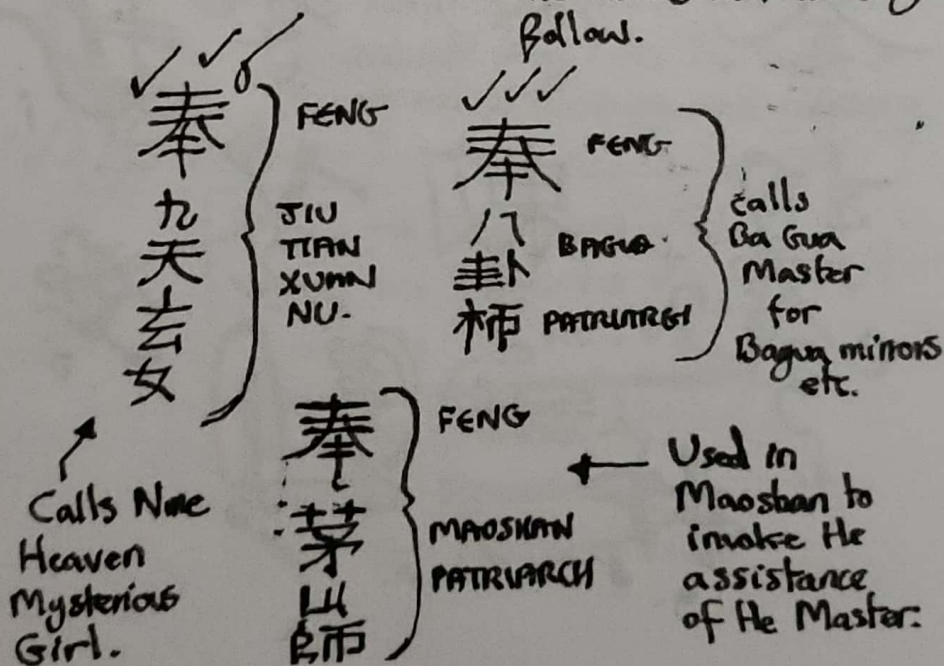 Follow.
奉
九
天
玄
女
FENG
JIU
TIAN
XUAN
NU.
Calls Nine
Heaven
Mysterious
Girl.
奉
八
卦
FENG
BAGUA.
PATRIARCH
Calls
Ba Gua
Master
for
Bagua mirrors
etc.
奉
茅
山
師
FENG
MAOSHAN
PATRIARCH
Used in
Maoshan to
invoke the
assistance
of the Master.